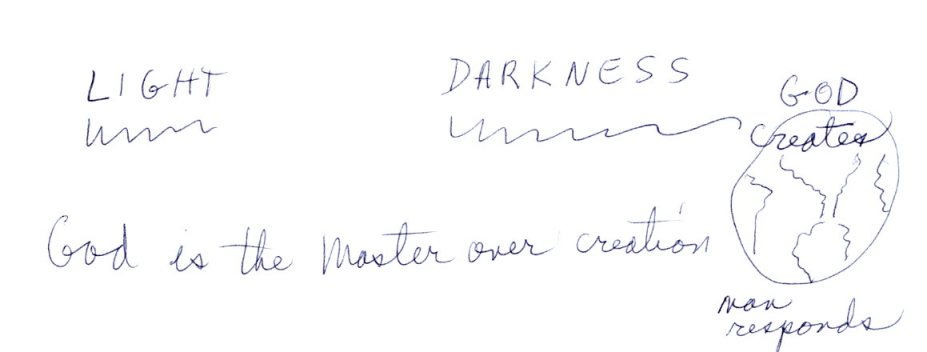 LIGHT DARKNESS
GOD
creates
God is the Master over creation
man
responds